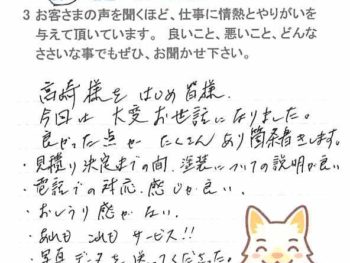 3 お客さまの声を聞くほど、仕事に情熱とやりがいを
与えて頂いています。 良いこと、悪いこと、どんな
ささいな事でもぜひ、お聞かせ下さい。
宮崎様をはじめ皆様、
今回は 大変お世話になりました。
良かった点が たくさんあり箇条書きします。
・見積り決定までの間、塗装についての説明が良い
・電話での対応、感じが良い、
・おしうり感がない、
・あれも これも サービス!!
・写真データを送ってくださった。